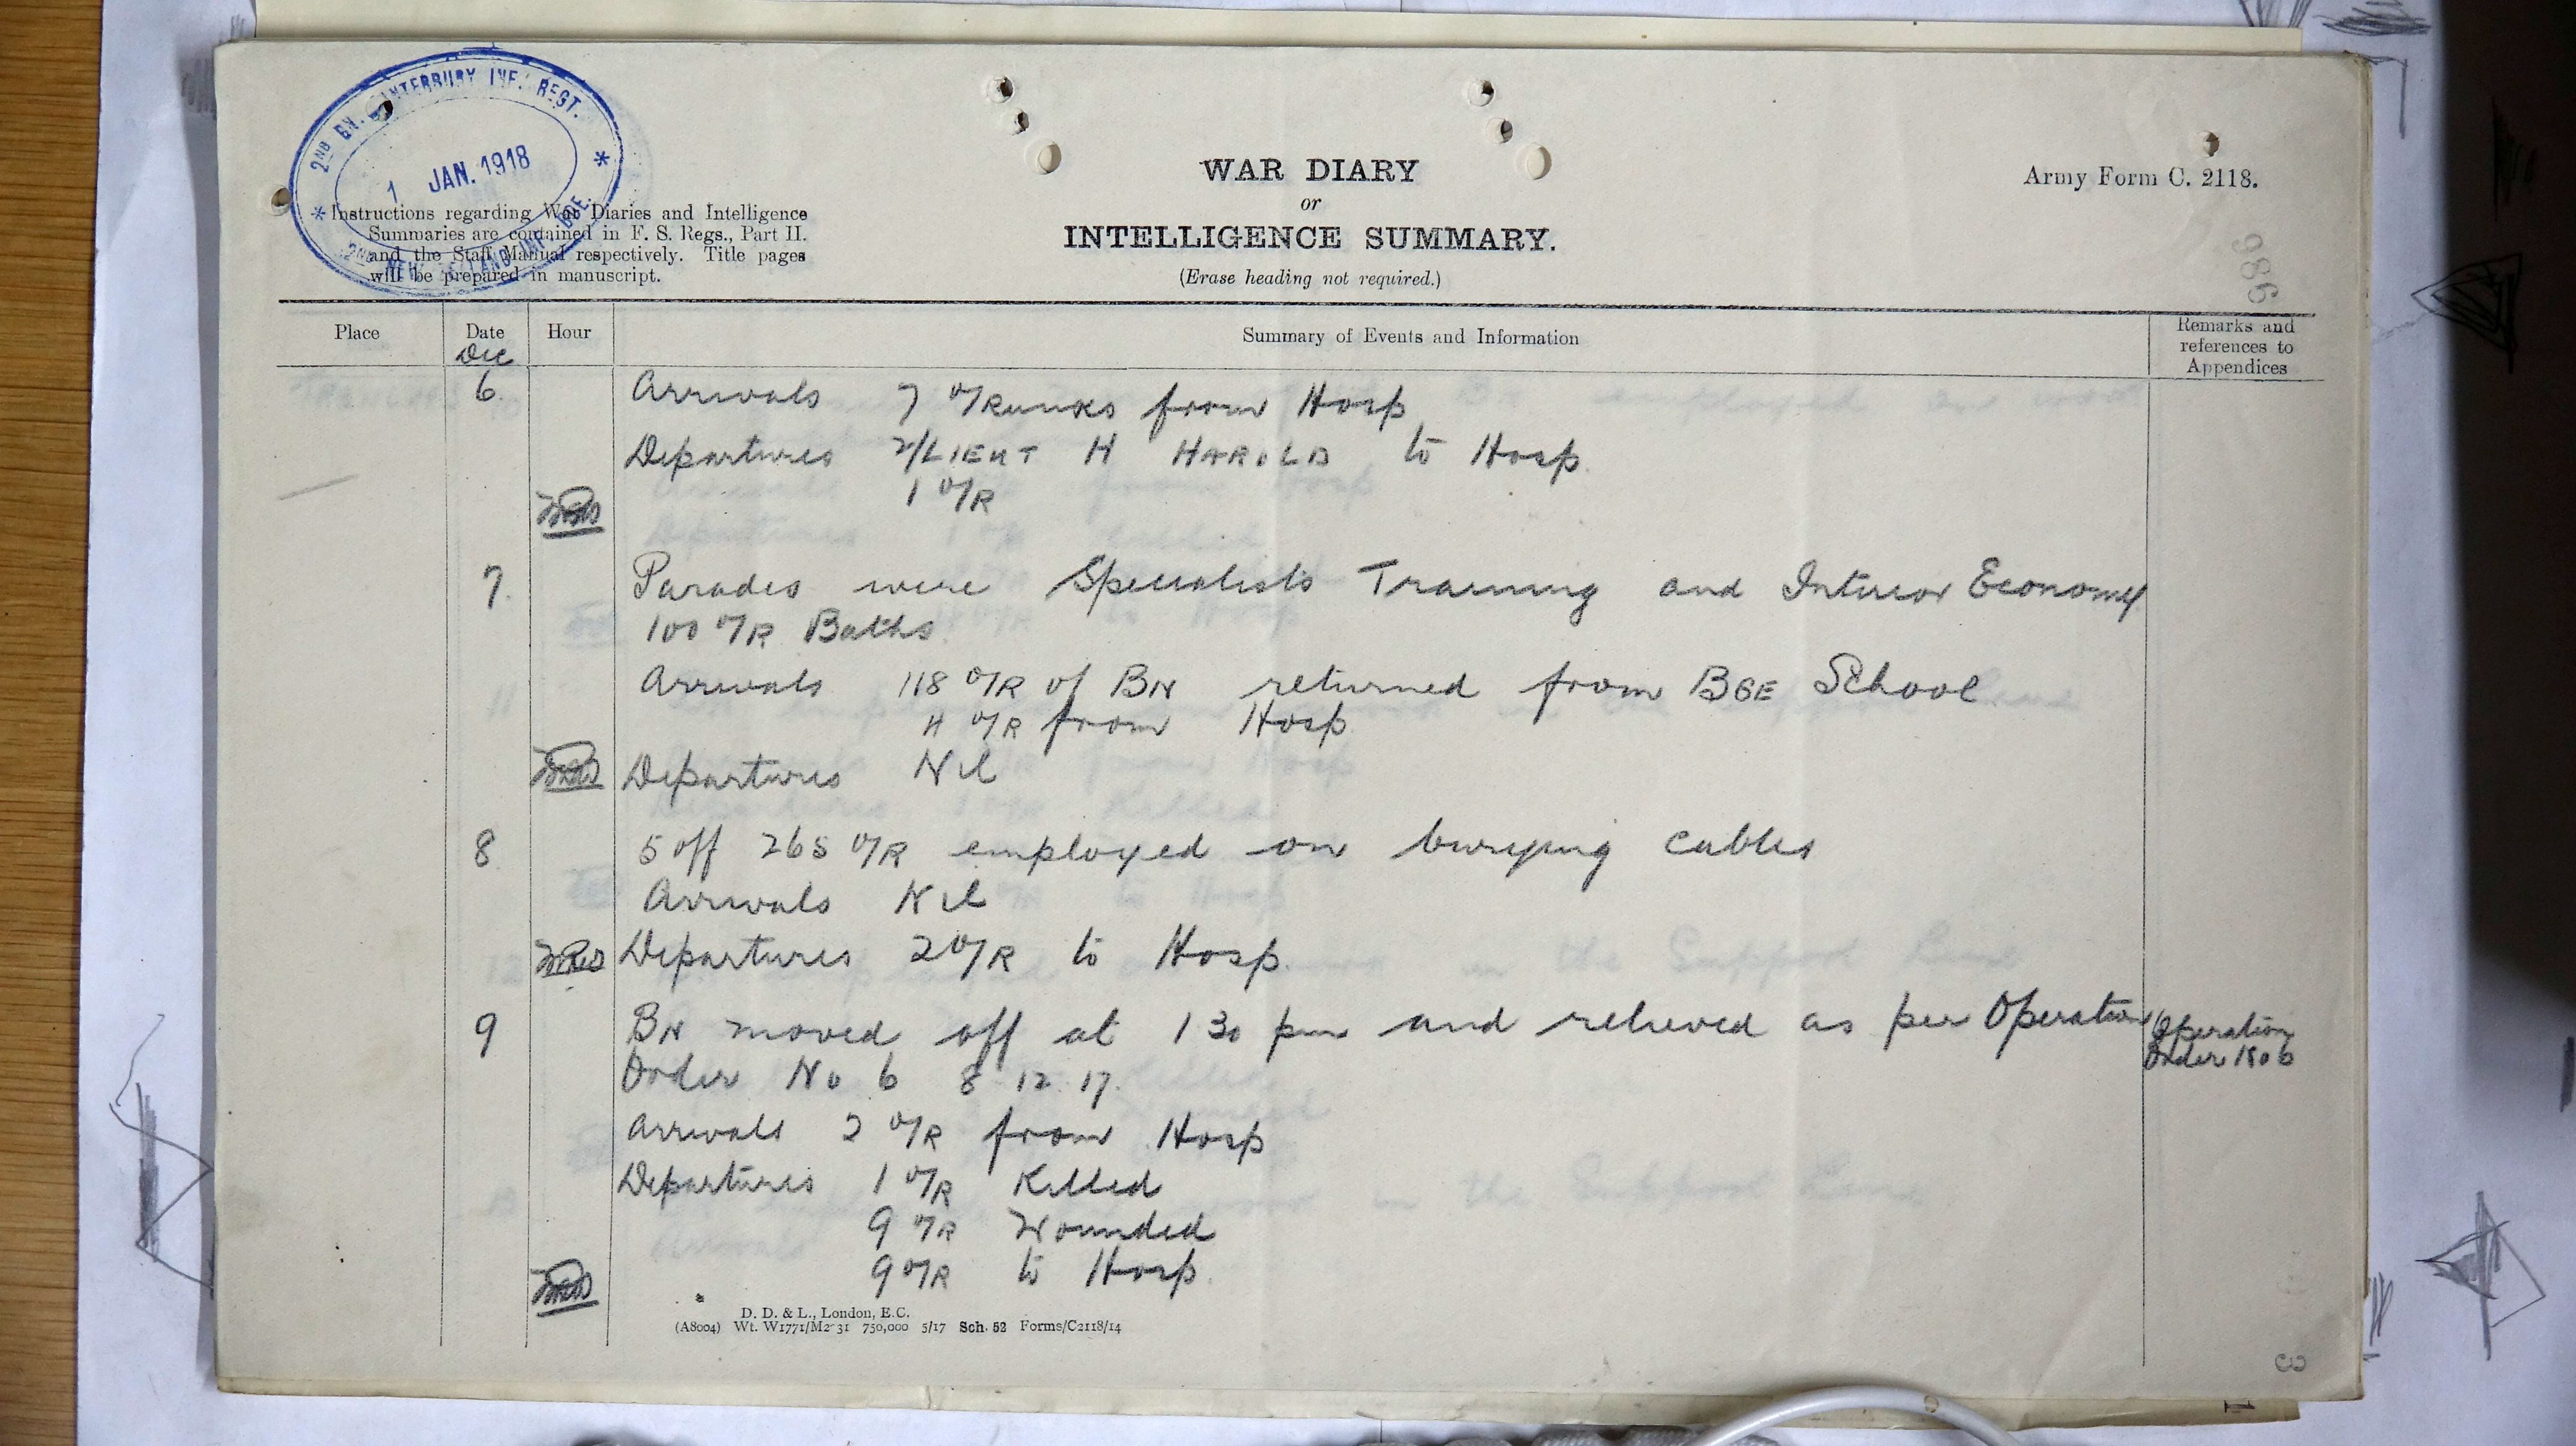 2ND BN. CANTERBURY INF. REGT.
1 JAN. 1918
2ND NEW ZEALAND INF. BDE.
Instructions regarding War Diaries and Intelligence
Summaries are contained in F. S. Regs., Part II.
and the Staff Manual respectively. Title pages
will be prepared in manuscript.
WAR DIARY
or
INTELLIGENCE SUMMARY.
(Erase heading not required.)
Army Form C. 2118.
986
Place Date Hour Summary of Events and Information Remarks and references to Appendices
Dec
6 Arrivals 7 O/Ranks from Hosp
Departures 2/LIEUT H HAROLD to Hosp.
1 O/R
7. Parades were Specialists Training and Interior Economy
100 O/R Baths.
Arrivals 118 O/R of BN returned from BGE School
4 O/R from Hosp
Departures Nil
8 5 off 265 O/R employed on burying cables
Arrivals Nil
Departures 2 O/R to Hosp.
9 BN moved off at 1 30 pm and relieved as per Operation Operation
Order No 6 8 12 17. Order No 6
Arrivals 2 O/R from Hosp
Departures 1 O/R Killed
9 O/R Wounded
9 O/R to Hosp.
D. D. & L., London, E.C.
(A8004) Wt. W1771/M2 31 750,000 5/17 Sch. 52 Forms/C2118/14
3
1